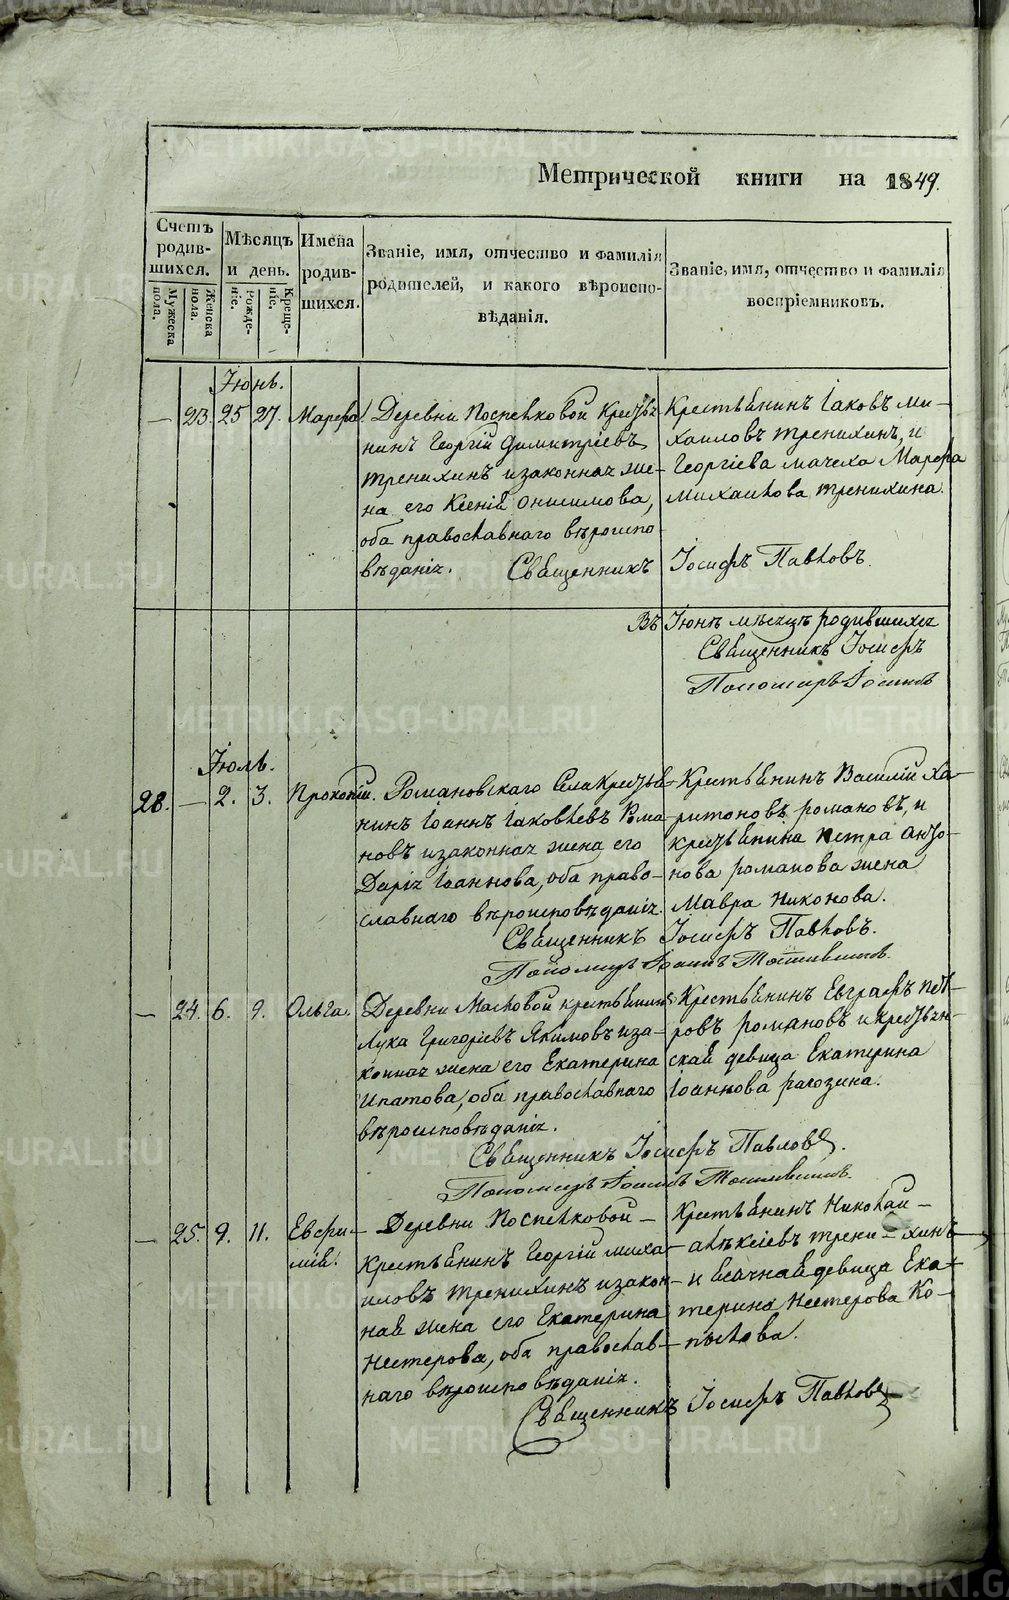 Метрической книги на 1849.
Счетъ родившихся.
Мужеска пола.
Женска пола.
Мѣсяцъ и день.
Рожденіе.
Крещеніе.
Имена родившихся.
Званіе, имя, отчество и фамилія
родителей, и какого вѣроиспо-
вѣданія.
Званіе, имя, отчество и фамилія
воспріемниковъ.
Іюнь.
— 23. 25 27. Марѳа.
Деревни Поспѣлковой Кресть
нинъ Георгій Димитріевъ
Тренихинъ изаконная же-
на его Ксенія Онисимова,
оба православнаго вѣроиспо-
вѣданія.
Крестьянинъ Іаковъ Ми-
хаиловъ Тренихинъ, и
Георгіева мачеха Марѳа
Михаилова Тренихина.
Священникъ Іосифъ Павловъ.
Въ Іюнѣ мѣсяцѣ родившихся
Священникъ Іосифъ
Пономарь Іоаннъ
Іюль.
28. — 2. 3. Прокопій.
Романовскаго Села Крестья-
нинъ Іоаннъ Іаковлевъ Рома-
новъ изаконная жена его
Дарія Іоаннова, оба право-
славнаго вѣроисповѣданія.
Крестьянинъ Василій Ха-
ритоновъ Романовъ, и
крестьянина Петра Анто-
нова Романова жена
Мавра Никонова.
Священникъ Іосифъ Павловъ.
Пономарь Іоаннъ
— 24. 6. 9. Ольга.
Деревни Масловой крестьянинъ
Лука Григоріевъ Якимовъ иза-
конная жена его Екатерина
Ипатова, оба православнаго
вѣроисповѣданія.
Крестьянинъ Евграфъ Пет-
ровъ Романовъ и крестьян-
ская девица Екатерина
Іоаннова Рагозина.
Священникъ Іосифъ Павловъ.
Пономарь Іоаннъ
— 25. 9. 11. Евфи-
мія.
Деревни Поспѣлковой —
Крестьянинъ Георгій Миха-
иловъ Тренихинъ изакон-
ная жена его Екатерина
Нестерова, оба православ-
наго вѣроисповѣданія.
Крестьянинъ Николай —
Алѣксіевъ Трени-хинъ
и девица Ека-
терина Нестерова Ко-
пылова.
Священникъ Іосифъ Павловъ
METRIKI.GASO-URAL.RU